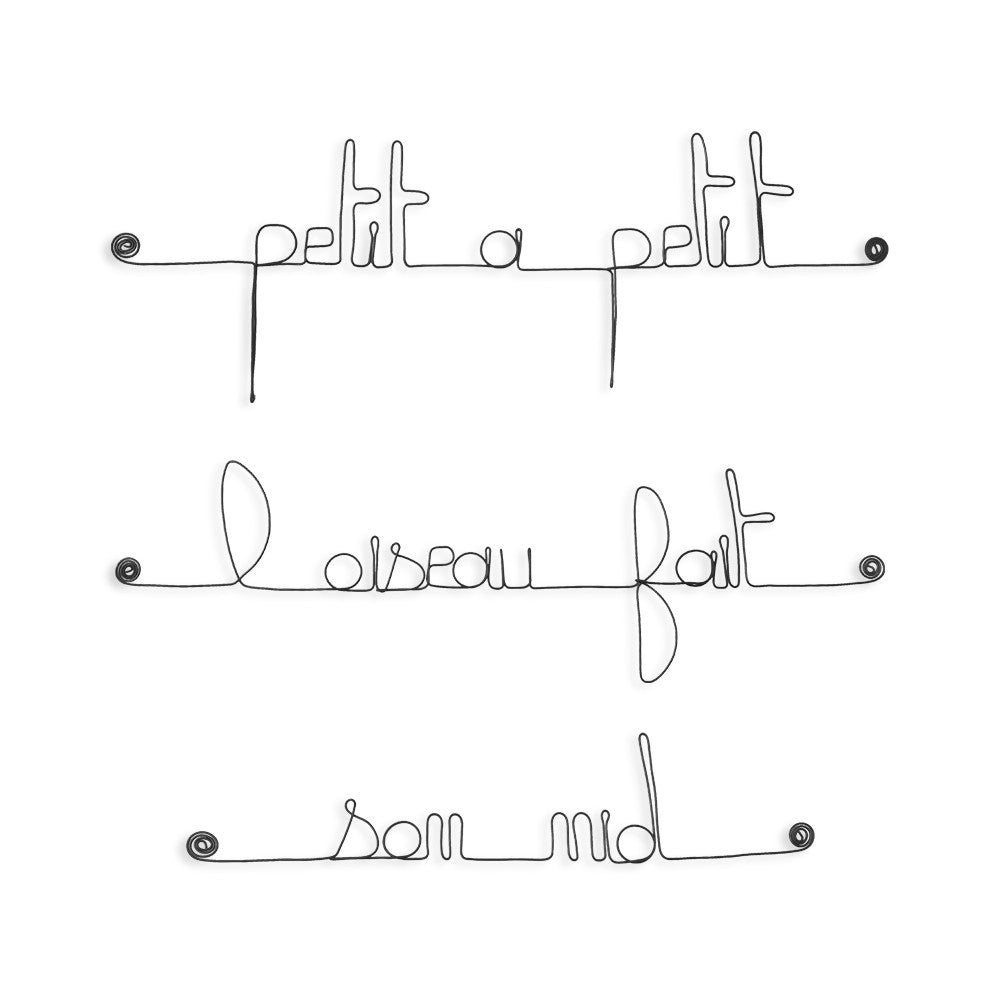 petit a petit
l oiseau fait
son nid